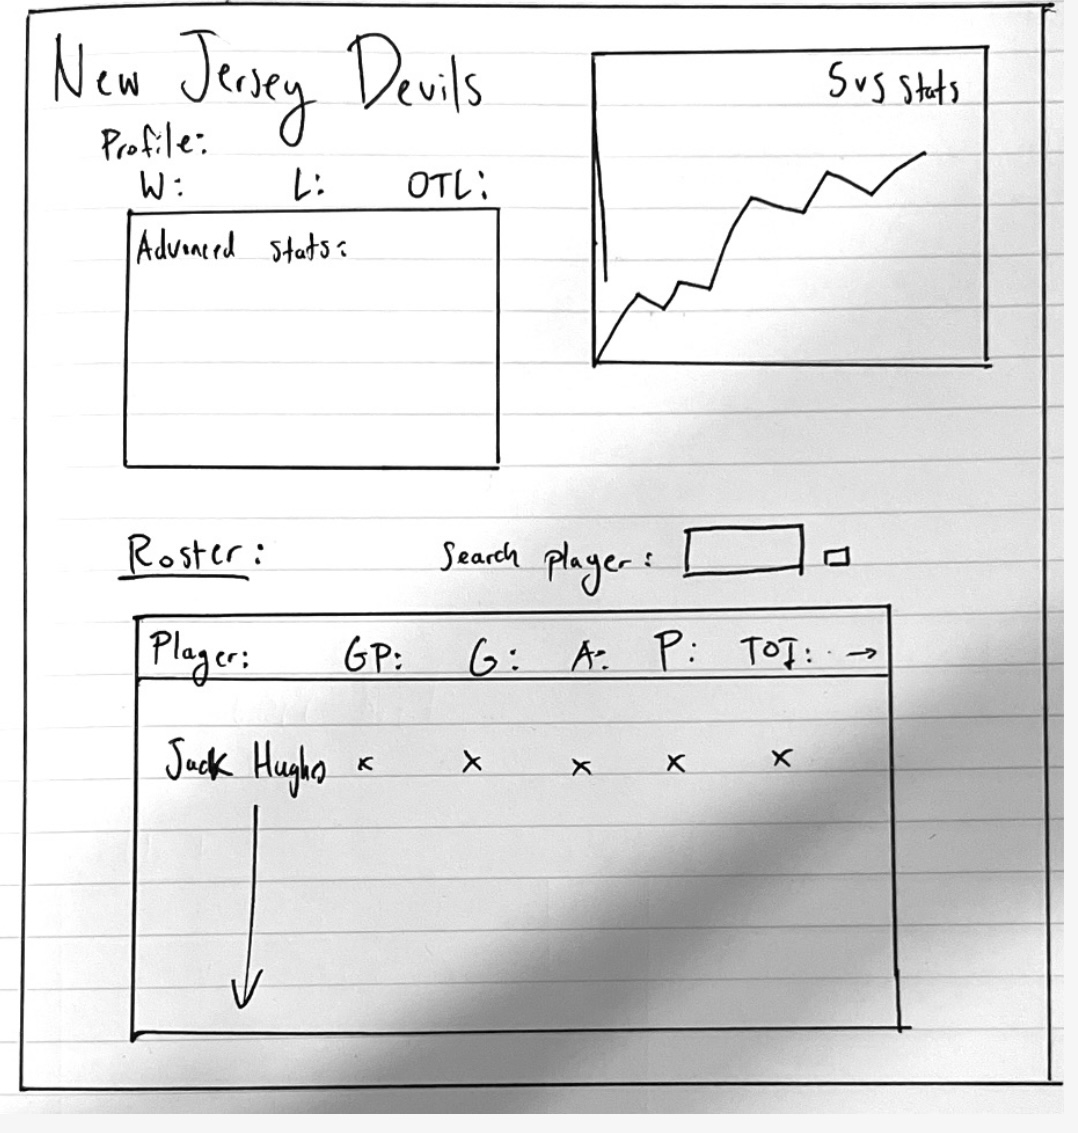 New Jersey Devils
Profile:
W: L: OTL:
Advanced stats:
5v5 stats
Roster:
Search player:
Player: GP: G: A: P: TOI: →
Jack Hughes x x x x x